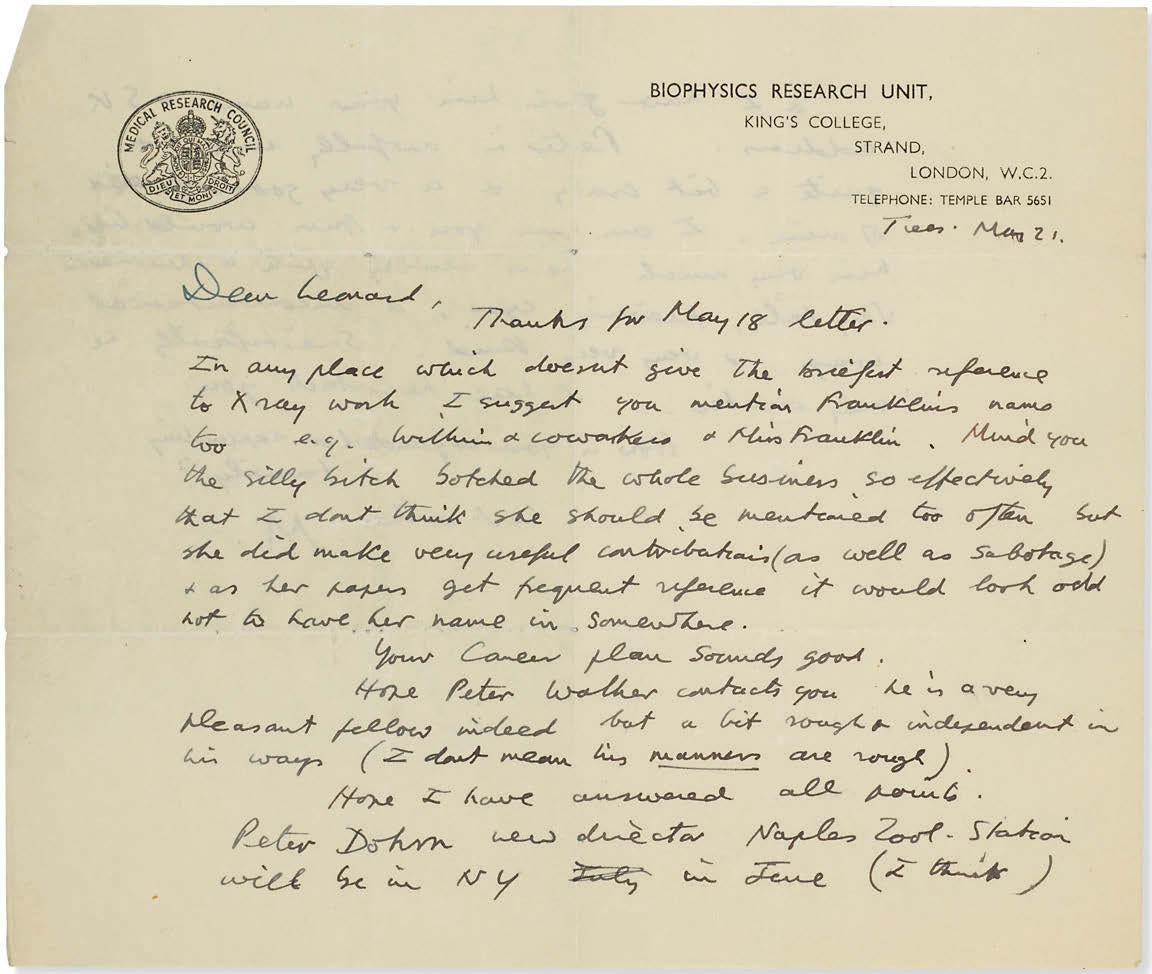 MEDICAL RESEARCH COUNCIL
DIEU ET MON DROIT
BIOPHYSICS RESEARCH UNIT,
KING'S COLLEGE,
STRAND,
LONDON, W.C.2.
TELEPHONE: TEMPLE BAR 5651
Tues. May 21.
Dear Leonard,
Thanks for May 18 letter.
In any place which doesnt give the briefest reference
to X ray work I suggest you mention Franklins name
too e.g. Wilkins & coworkers & Miss Franklin. Mind you
the silly bitch botched the whole business so effectively
that I dont think she should be mentioned too often but
she did make very useful contributions (as well as sabotage)
& as her papers get frequent reference it would look odd
not to have her name in somewhere.
Your Career plan sounds good.
Hope Peter Walker contacts you he is a very
pleasant fellow indeed but a bit rough & independent in
his ways (I dont mean his manners are rough)
Hope I have answered all points.
Peter Dohrn new director Naples Zool. Station
will be in NY July in June (I think)